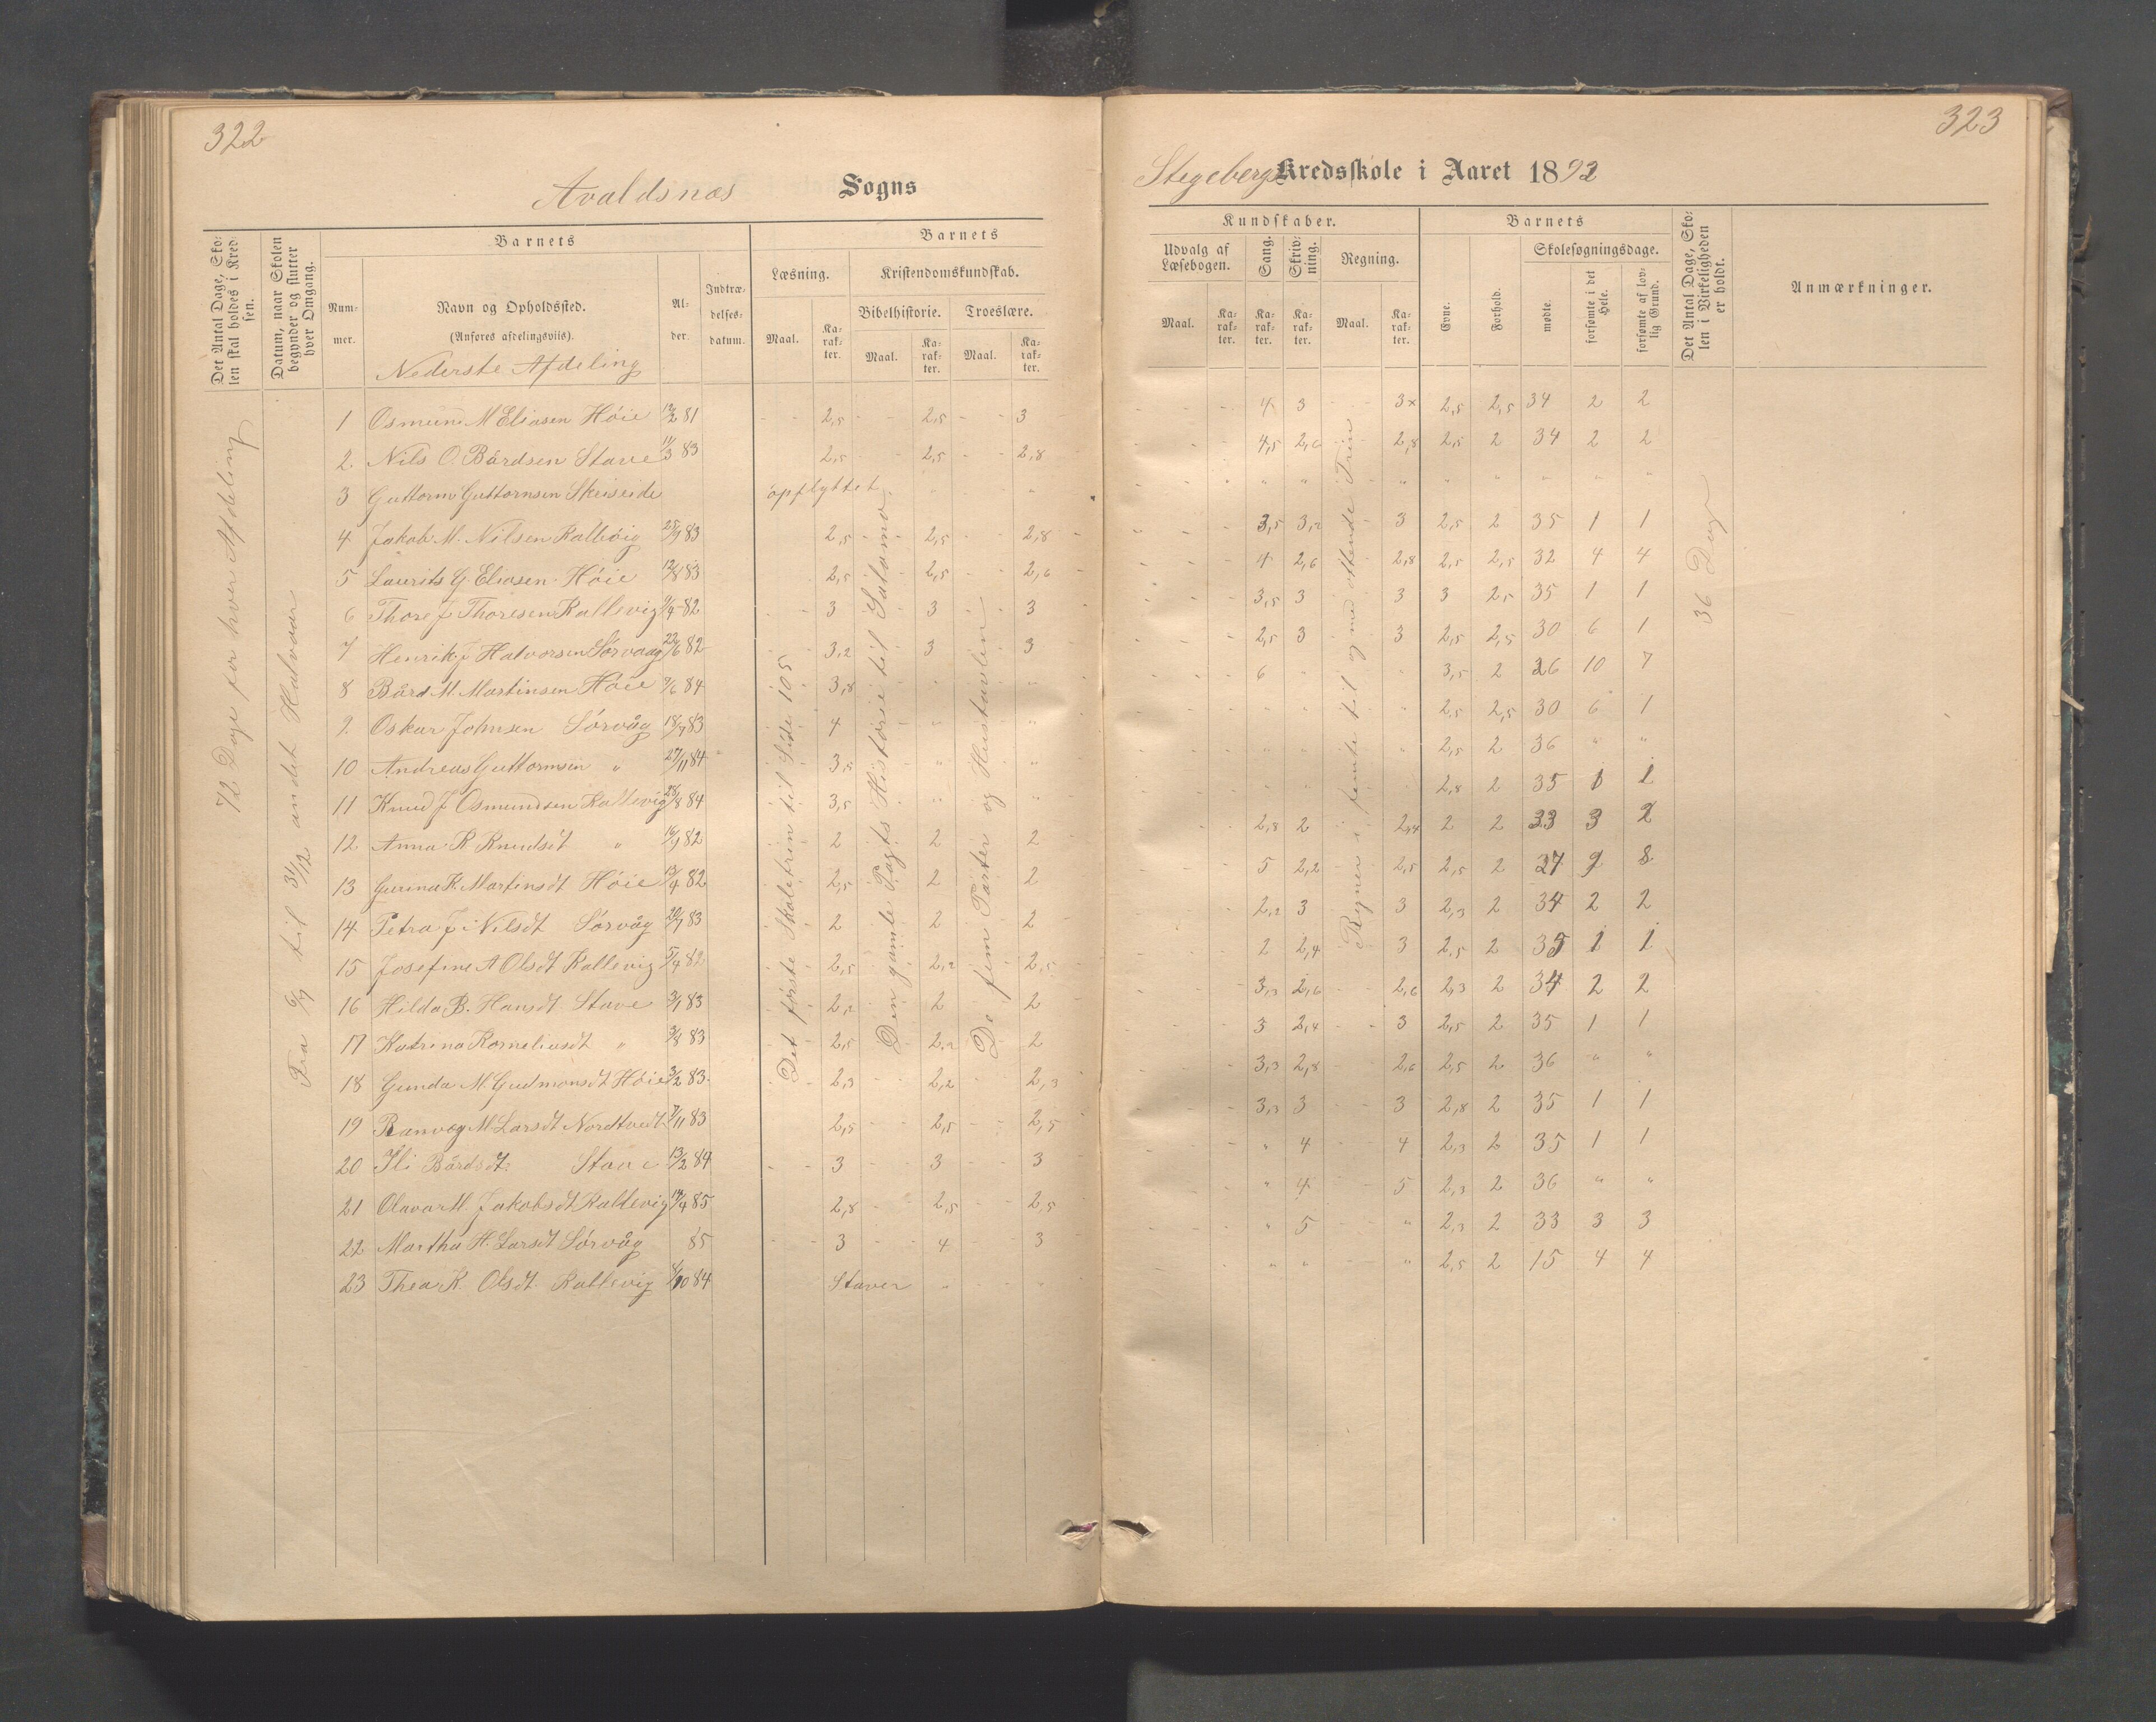 322
Avaldsnes Sogns
Det Antal Dage, Sko-
len skal holdes i Kred
sen.
Datum, naar Skolen
begynder og slutter
hver Omgang.
Barnets
Barnets
Num-
mer.
Navn og Opholdssted.
(Anføres afdelingsviis).
Nederste Afdeling
Al-
der.
Indtræ-
delses-
datum.
Læsning.
Kristendomskundskab.
Bibelhistorie. Troeslære.
Maal. Ka-
rak-
ter.
Maal. Ka-
rak-
ter.
Maal. Ka-
rak-
ter.
72 Dage for hver Afdeling
Fra 6/9 til 31/12 andet Halvaar
Det første Skoletrin til Side 105
Den gamle Pagts Historie til Salomo
De fem Parter og Hustavlen
1 Osmund M Eliasen Höie 12/2 81 2,5 2,5 3
2 Nils O. Bårdsen Stave 11/3 83 2,5 2,5 2,8
3 Guttorm Guttormsen Skriseide opflyttet " "
4 Jakob M. Nilsen Kallevig 25/9 83 2,5 2,5 2,8
5 Laurits G. Eliasen Höie 12/8 83 2,5 2,5 2,6
6 Thore J Thoresen Kallevig 9/4 82 3 3 3
7 Henrik J Halvorsen Sörvaag 22/6 82 3,2 3 3
8 Bård M. Martinsen Höie 9/6 84 3,8 " "
9 Oskar Johnsen Sörvåg 18/9 83 4 " "
10 Andreas Guttormsen " 27/11 84 3,5 " "
11 Knud J Osmundsen Kallevig 28/8 84 3,5 " "
12 Anna R Knudsdt " 16/9 82 2 2 2
13 Gurina K Martinsdt Höie 13/4 82 2,5 2 2
14 Petra J. Nilsdt Sörvåg 20/7 83 2 2 2
15 Josefine A Olsdt Kallevig 5/4 82 2,5 2,2 2,5
16 Hilda B. Hansdt Stave 3/1 83 2,2 2 2
17 Katrina Korneliusdt " 3/8 83 2,5 2,2 2
18 Gunda M. Gudmonsdt Höie 3/2 83 2,3 2,2 2,3
19 Ranveg M Larsdt Nordtvedt 7/11 83 2,5 2,5 2,5
20 Ili Bårdsdt Stave 13/2 84 3 3 3
21 Olavar M. Jakobsdt Kallevig 14/4 85 2,8 2,5 2,5
22 Martha H. Larsdt Sörvåg 85 3 4 3
23 Thea K. Olsdt. Kallevig 8/10 84 Staver " "
323
Stegebergs Kredsskole i Aaret 1892
Kundskaber.
Barnets
Udvalg af
Læsebogen.
Sang.
Skriv-
ning.
Regning.
Evne.
Forhold.
Skolesøgningsdage.
Maal. Ka-
rak-
ter.
Ka-
rak-
ter.
Ka-
rak-
ter.
Maal. Ka-
rak-
ter.
mødte.
forsømte i det
Hele.
forsømte af lov-
lig Grund.
Det Antal Dage, Sko-
len i Virkeligheden
er holdt.
Anmærkninger.
Regner i femte til og med ottende Trin
36 Dage
4 3 3× 2,5 2,5 34 2 2
4,5 2,6 2,8 2,5 2 34 2 2
" " " " " " " "
3,5 3,2 3 2,5 2 35 1 1
4 2,6 2,8 2,5 2,5 32 4 4
3,5 3 3 3 2,5 35 1 1
2,5 3 3 2,5 2,5 30 6 1
6 " " 3,5 2 26 10 7
" " " 2,5 2,5 30 6 1
" " " 2,5 2 36 " "
" " " 2,8 2 35 1 1
2,8 2 2,4 2 2 33 3 2
5 2,2 2,5 2,5 2 27 9 8
2,2 3 3 2,3 2 34 2 2
2 2,4 3 2,5 2 35 1 1
3,3 2,6 2,6 2,3 2 34 2 2
3 2,4 3 2,5 2 35 1 1
3,3 2,8 2,6 2,5 2 36 " "
3,3 3 3 2,8 2 35 1 1
" 4 4 2,3 2 35 1 1
" 4 5 2,3 2 36 " "
" 5 " 2,3 2 33 3 3
" " " 2,5 2 15 4 4